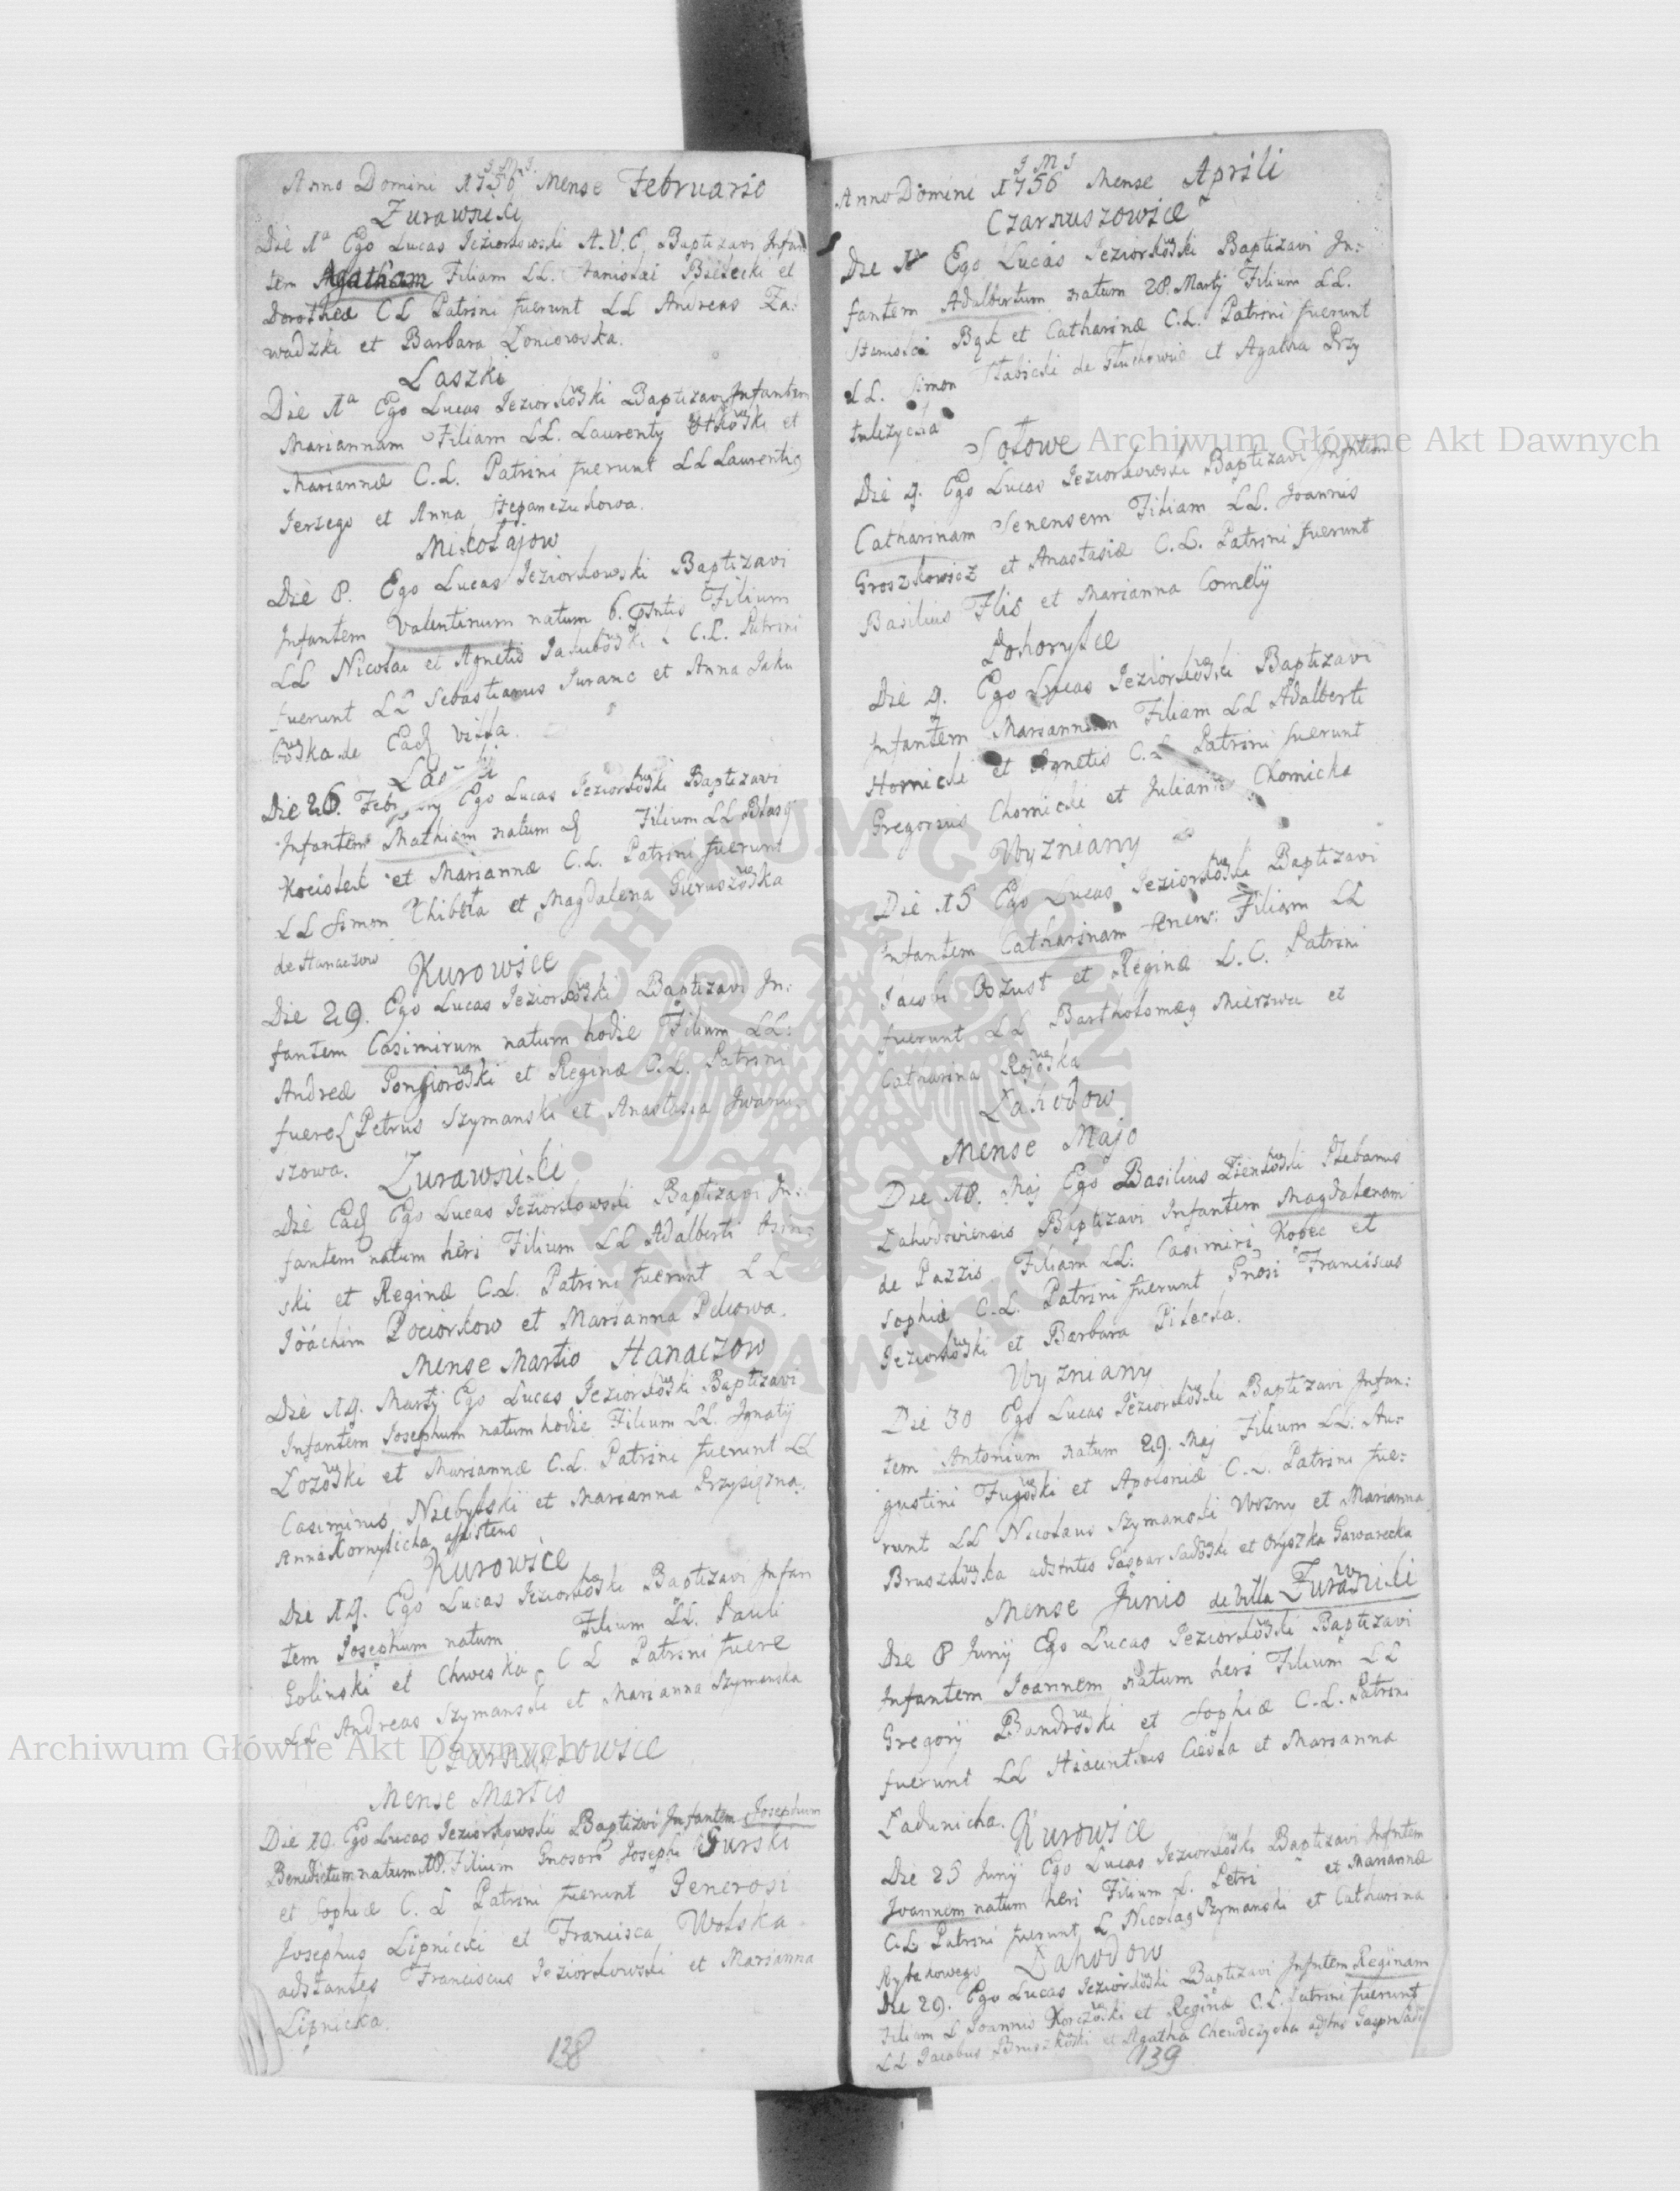 J M J
Anno Domini 1756 Mense Februario
Zurawniki
Die 1a Ego Lucas Jeziorkowski A.V.C. Baptizavi Infan
tem Agatham Filiam LL. Stanislai Bielecki et
Dorotheæ C L Patrini fuerunt LL Andreas Za:
wadzki et Barbara Loniowska.
Laszki
Die 1a Ego Lucas Jeziorkowski Baptizavi Infantem
Mariannam Filiam LL. Laurenty et
Mariannæ C.L. Patrini fuerunt LL Laurentig
Jerzego et Anna Stepanczukowa.
Mikołajow
Die 8. Ego Lucas Jeziorkowski Baptizavi
Infantem Valentinum natum 6. Filium
LL Nicolai et Agnetis Jakubowski C.L. Patrini
fuerunt LL Sebastianus Juranc et Anna Jaku
bowska de Ead villa.
Laszki
Die 26. Febr Ego Lucas Jeziorkowski Baptizavi
Infantem Mathiam natum Filium LL Blasy
Kociołek et Mariannæ C.L. Patrini fuerunt
LL Simon Chibota et Magdalena
de Hanaczow
Kurowice
Die 29. Ego Lucas Jeziorkowski Baptizavi In:
fantem Casimirum natum hodie Filium LL:
Andreæ et Reginæ C.L. Patrini
fuere L Petrus Szymanski et Anastasia Iwanu
szowa.
Zurawniki
Die Ead Ego Lucas Jeziorkowski Baptizavi In:
fantem natum heri Filium LL Adalberti Osin:
ski et Reginæ C.L. Patrini fuerunt LL
Joachim Pociorkow et Marianna Pelcowa.
Mense Martio Hanaczow
Die 14. Martij Ego Lucas Jeziorkowski Baptizavi
Infantem Josephum natum hodie Filium LL. Ignatij
Lozowski et Mariannæ C.L. Patrini fuerunt LL
Casimirus Niebylski et Marianna Przysiężna.
Anna Kornylicha assistens
Kurowice
Die 14. Ego Lucas Jeziorkowski Baptizavi Infan
tem Josephum natum Filium LL. Pauli
Golinski et Chweska C L Patrini fuere
LL Andreas Szymanski et Marianna Szymanska
Czarnuszowice
Mense Martio
Die 20. Ego Lucas Jeziorkowski Baptizavi Infantem Josephum
Benedictum natum 18. Filium Gnosor Josephi Gurski
et Sophiæ C. L Patrini fuerunt Generosi
Josephus Lipnicki et Francisca Wolska
adstantes Franciscus Jeziorkowski et Marianna
Lipnicka.
138
J M J
Anno Domini 1756 Mense Aprili
Czarnuszowice
Die 1a Ego Lucas Jeziorkowski Baptizavi In:
fantem Adalbertum natum 28. Martij Filium LL.
Stanislai Bąk et Catharinæ C.L. Patrini fuerunt
LL. Simon Stabicki de Głuchowice et Agatha Przy
tulizycha
Sołowe
Die 4. Ego Lucas Jeziorkowski Baptizavi Infntem
Catharinam Senensem Filiam LL. Joannis
Groszkowicz et Anastasiæ C.L. Patrini fuerunt
Basilius Flis et Marianna Comdij
Dohorylce
Die 4. Ego Lucas Jeziorkowski Baptizavi
Infantem Mariannam Filiam LL Adalberti
Hornicki et Agnetis C.L Patrini fuerunt
Gregorius Chornicki et Julianna Chornicka
Wyzniany
Die 15 Ego Lucas Jeziorkowski Baptizavi
Infantem Catharinam Senens: Filiam LL
Jacobi Oszust et Reginæ L.C. Patrini
fuerunt LL Bartholomæg Mierzwa et
Catharina
Lahodow
Mense Majo
Die 18. Maj Ego Basilius Plebanus
Lahodoviensis Baptizavi Infantem Magdalenam
de Pazzis Filiam LL: Casimiri Kopec et
Sophiæ C.L. Patrini fuerunt Gnosi Franciscus
Jeziorkowski et Barbara Pilecka.
Wyzniany
Die 30 Ego Lucas Jeziorkowski Baptizavi Infan:
tem Antonium natum 29. Maj Filium LL. Au:
gustini et Apoloniæ C.L. Patrini fue:
runt LL Nicolaus Szymanski Wozny et Marianna
Bruszkowska adstntes Gaspar Sadowski et Oryszka Gawarecka
Mense Junio de Villa Zurawniki
Die 8 Junij Ego Lucas Jeziorkowski Baptizavi
Infantem Joannem natum heri Filium LL
Gregorij Bandrowski et Sophiæ C.L. Patrini
fuerunt LL Hiacinthus Ciesla et Marianna
Ladunicha.
Kurowice
Die 25 Junij Ego Lucas Jeziorkowski Baptizavi Infntem
Joannem natum heri Filium L. Petri et Mariannæ
C.L. Patrini fuerunt L Nicolag Szymanski et Catharina
Rybakowego
Lahodow
Die 29. Ego Lucas Jeziorkowski Baptizavi Infntem Reginam
Filiam L Joannis Korczowski et Reginæ C.L. Patrini fuerunt
LL Jacobus Bruszkowski et Agatha
139
Archiwum Główne Akt Dawnych
Archiwum Główne Akt Dawnych
ARCHIWUM GŁÓWNE AKT DAWNYCH